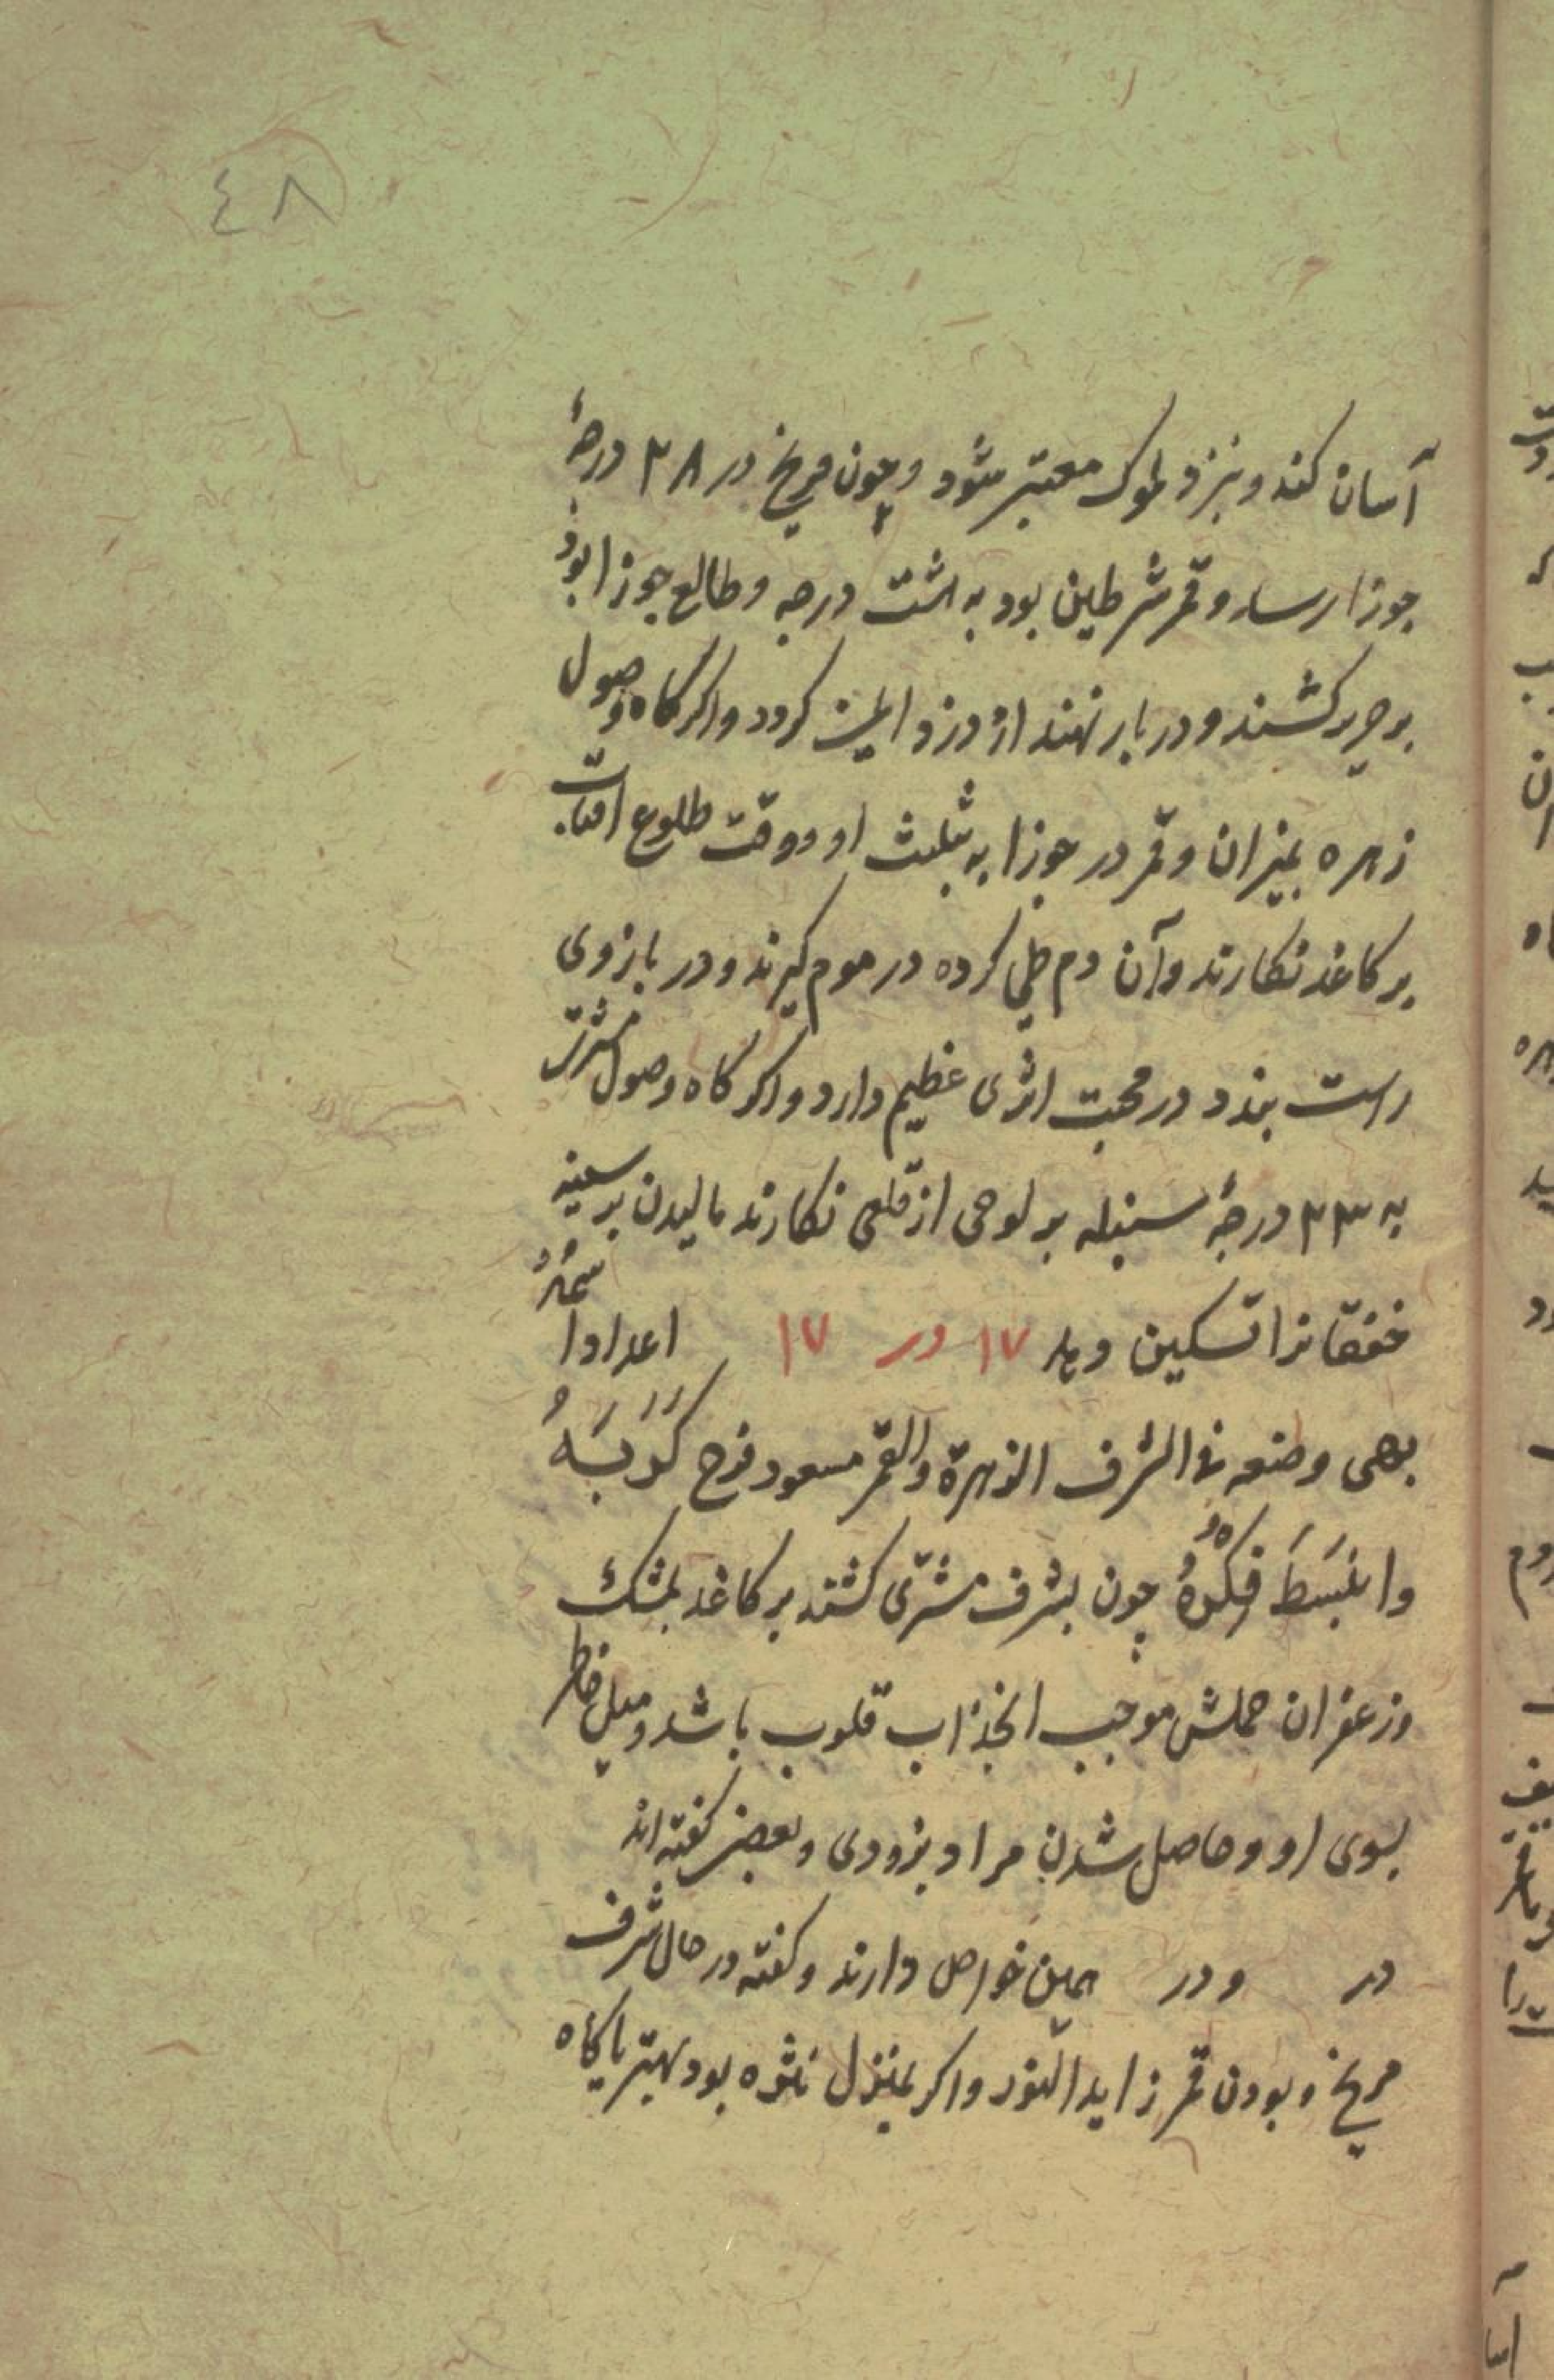 ٤٨
آسان کند و بنزد ملوک معتبر شود و چون مریخ در ٢٨ درجهٔ
جوزا رسد و قمر شرطین بود به هشت درجه و طالع جوزا بود
بر حریر کشند و در بار نهند از دزد ایمن کردد و اکر کاه وصول
زهره بمیزان و قمر در جوزا به تثلیث او و وقت طلوع افتاب
بر کاغذ نکارند و آن دم طی کرده در موم کیرند و در بازوی
راست بندد در محبت اثری عظیم دارد و اکر کاه وصول مشتری
به ٢٣ درجهٔ سنبله بر لوحی از قلعی نکارند مالیدن بر سینه
خفقانرا تسکین دهد ١٧ در ١٧ اعدادا
بهی وضعه فی الشرف الزهرة والقمر مسعود فرج کربه
وانبسط فکره چون بشرف مشتری کشند بر کاغذ بمشک
و زعفران حملش موجب انجذاب قلوب باشد و میل خاطر
بسوی او و حاصل شدن مراد بزودی و بعضی کفته اند
در و در همین خواص دارند و کفته در حال شرف
مریخ و بودن قمر زاید النور و اکر بمنزل نثره بود بهتر یا کاه